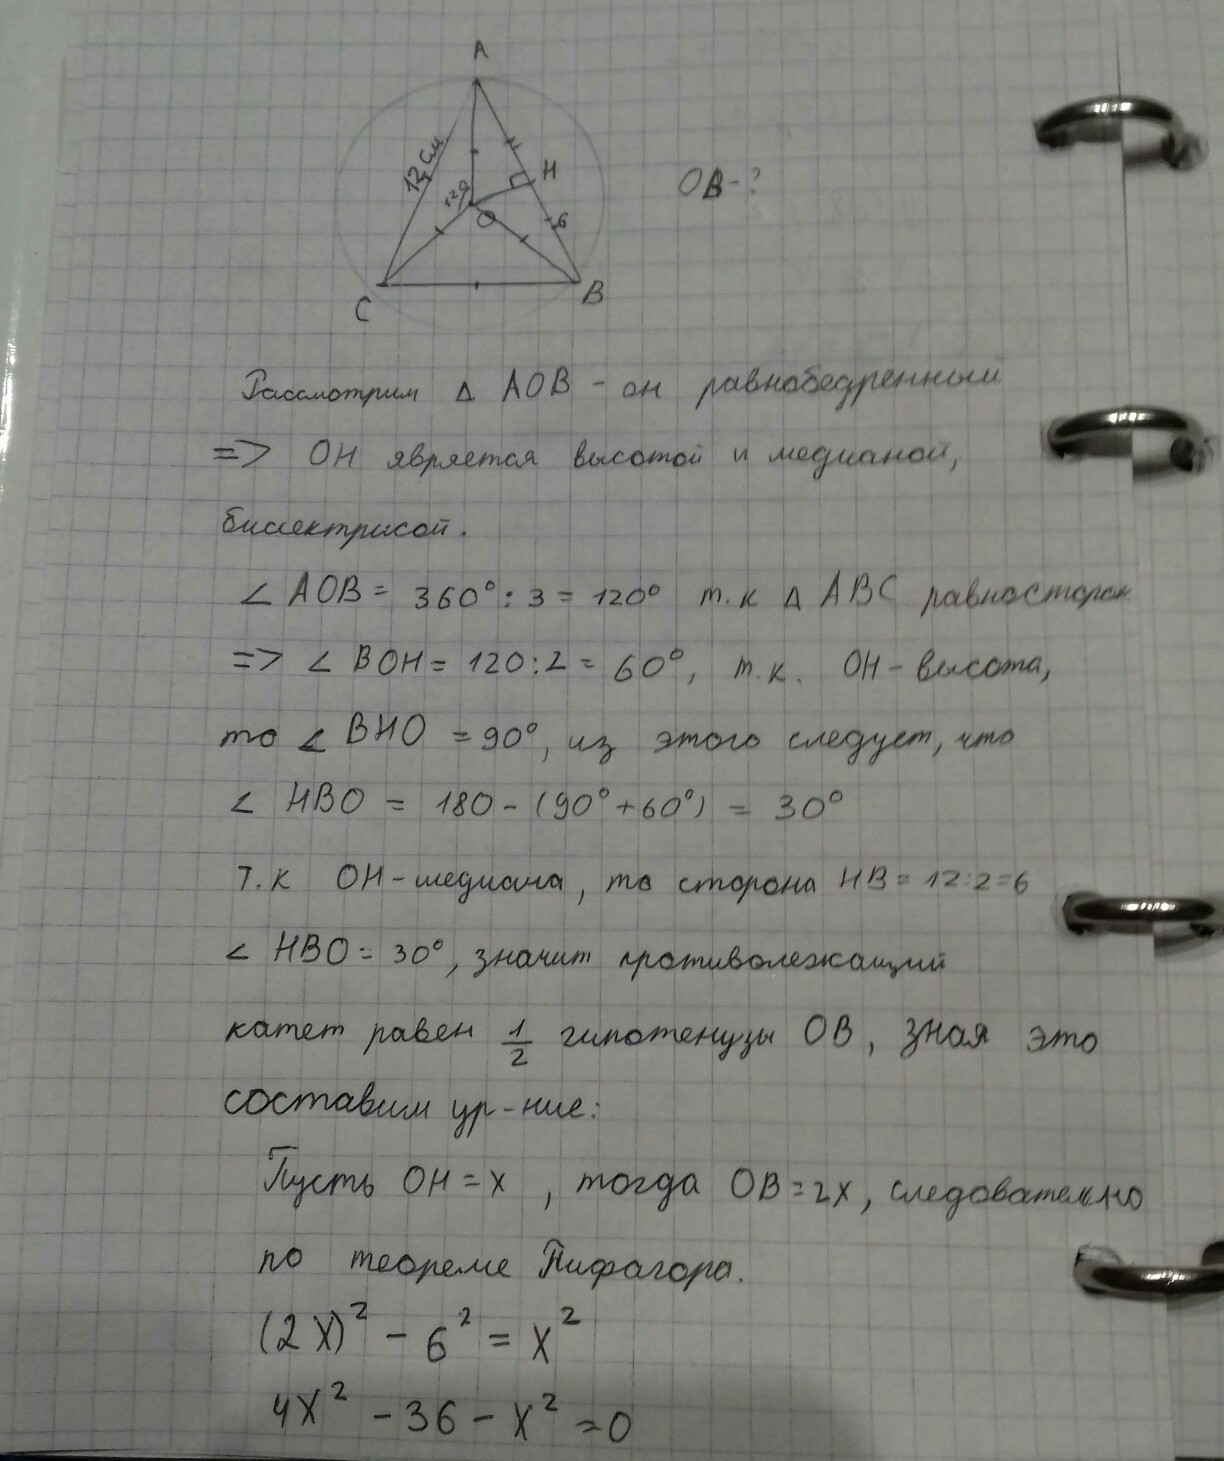 A
12 см
H
120
O
6
C
B
OB - ?
Рассмотрим Δ AOB - он равнобедренный
=> OH является высотой и медианой,
биссектрисой.
∠ AOB = 360° : 3 = 120° т.к Δ ABC равносторон
=> ∠ BOH = 120 : 2 = 60°, т.к. OH - высота,
то ∠ BHO = 90°, из этого следует, что
∠ HBO = 180 - (90° + 60°) = 30°
Т.к OH - медиана, то сторона HB = 12 : 2 = 6
∠ HBO = 30°, значит противолежащий
катет равен 1/2 гипотенузы OB, зная это
составим ур-ние:
Пусть OH = x, тогда OB = 2x, следовательно
по теореме Пифагора.
(2x)² - 6² = x²
4x² - 36 - x² = 0